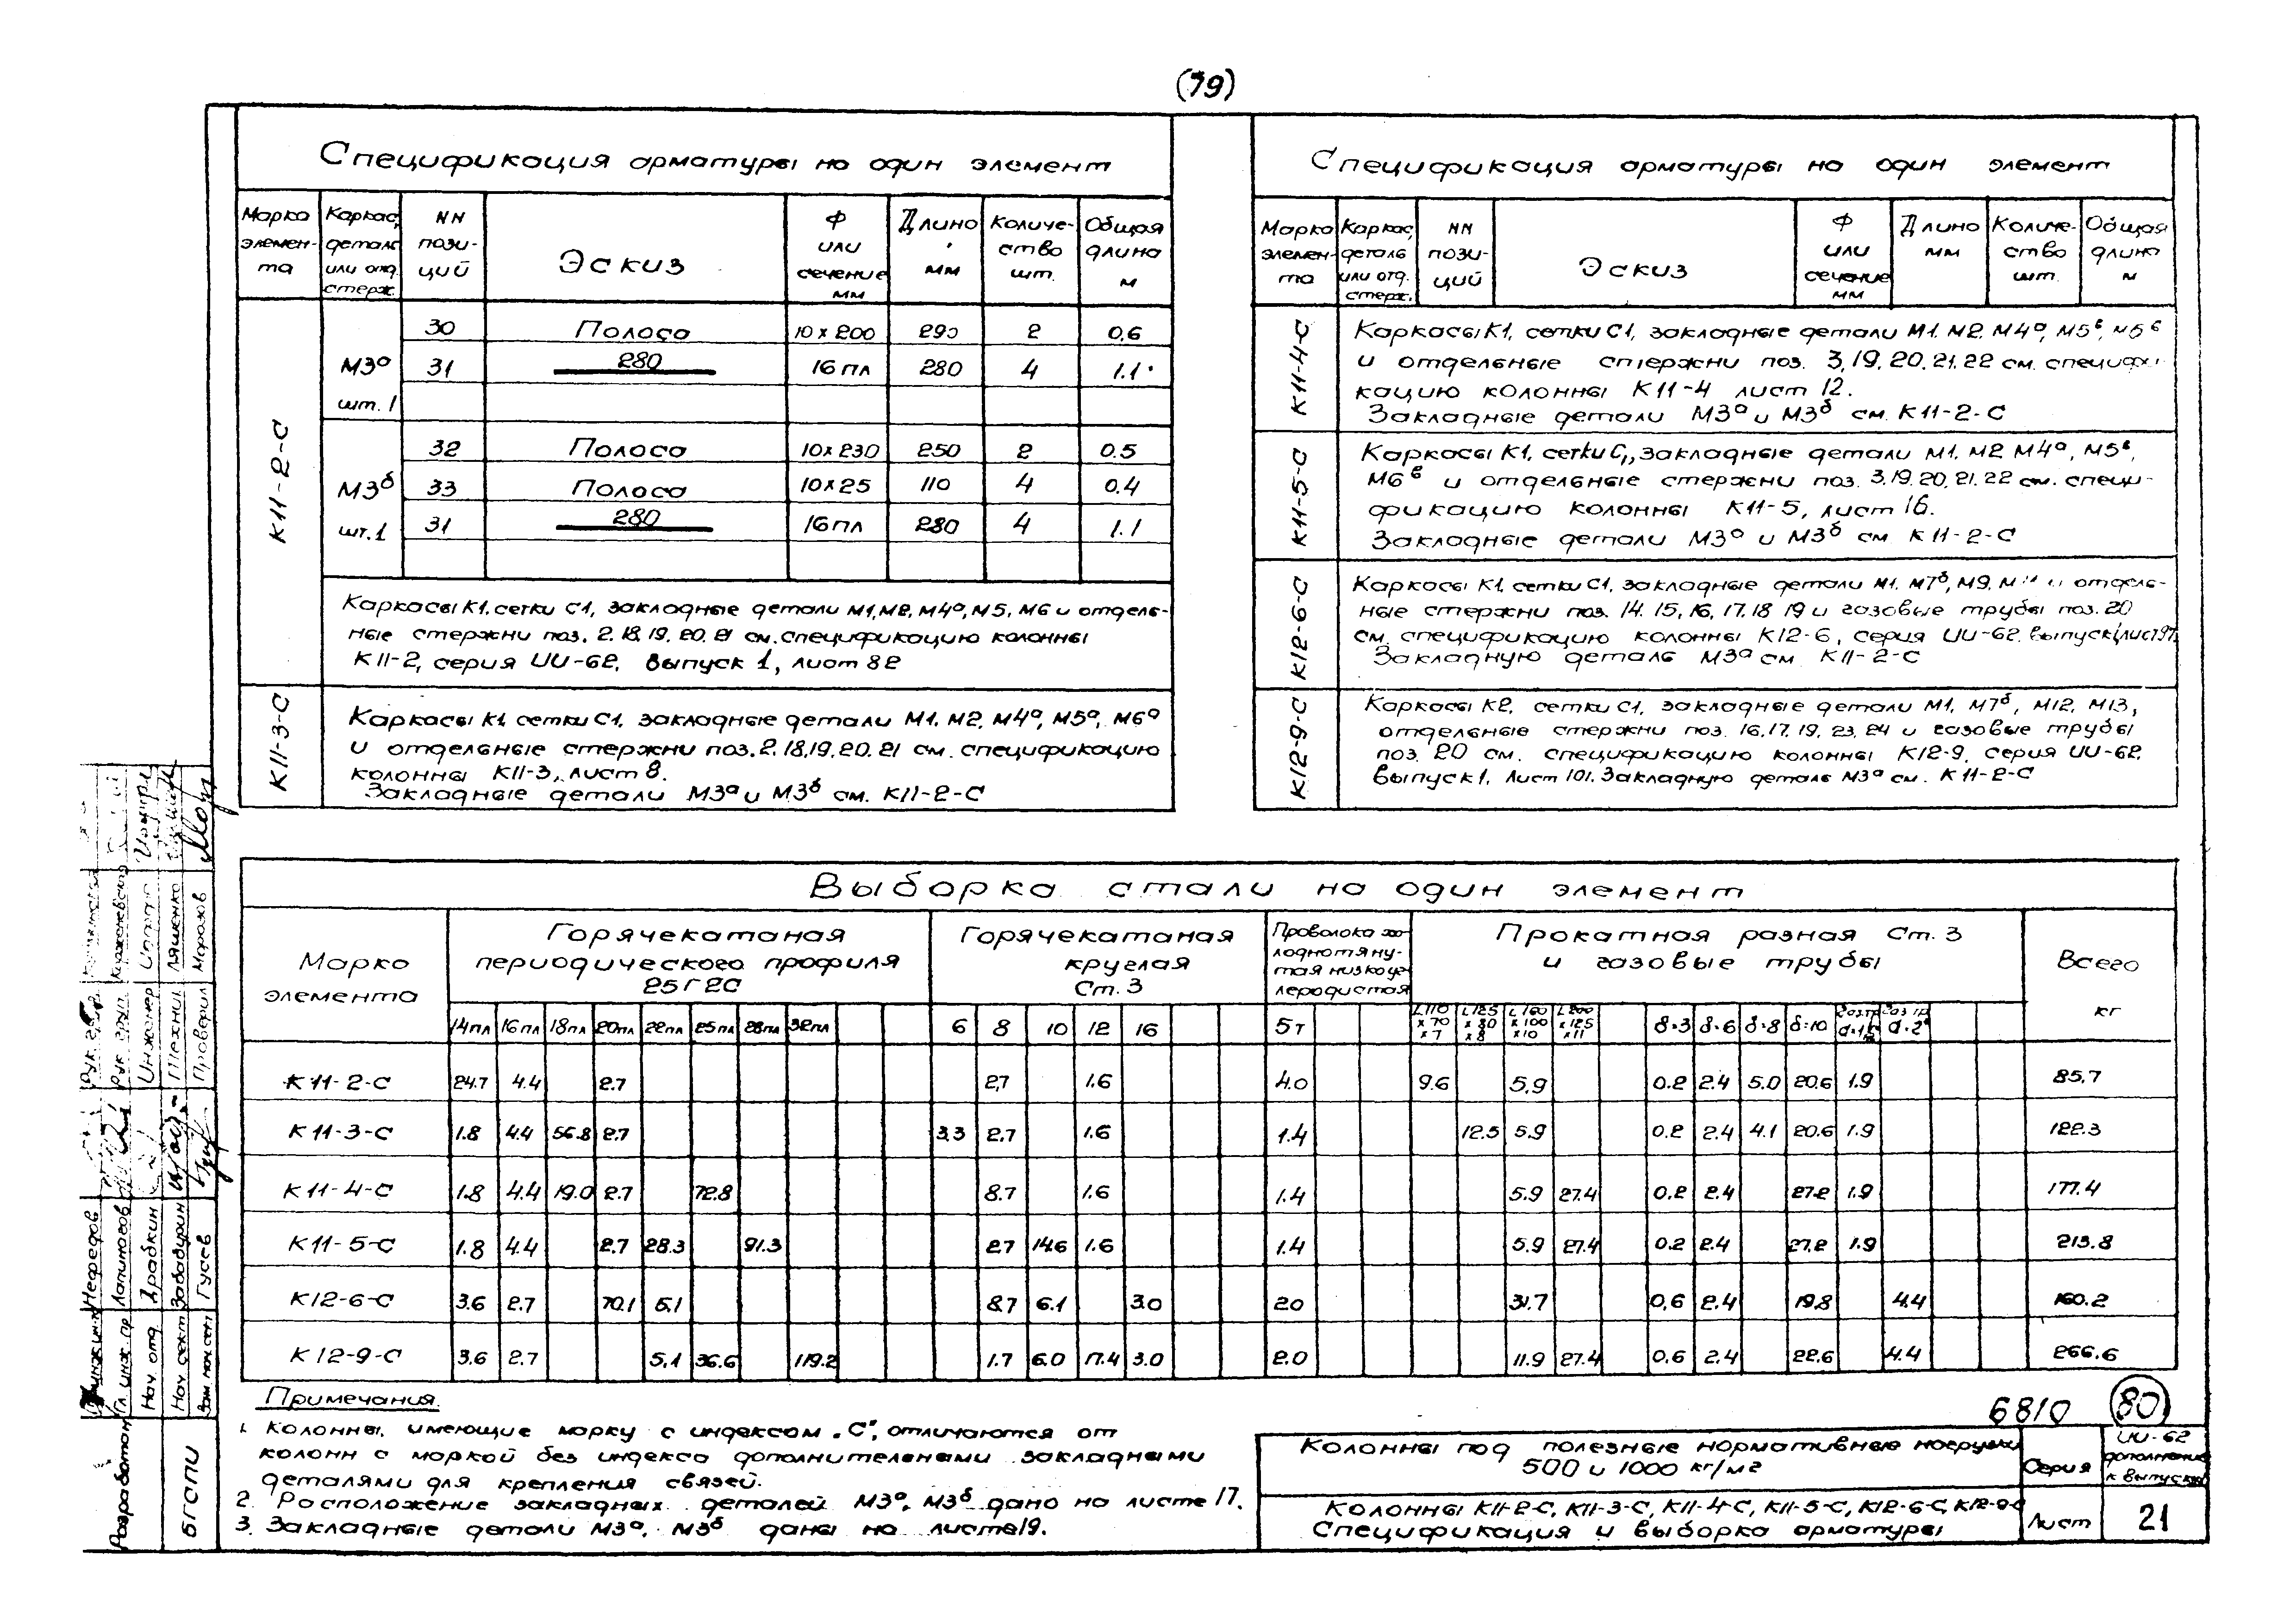 (79)
Спецификация арматуры на один элемент
Марка элемента | Каркас, деталь или отд. стерж. | NN позиций | Эскиз | Ф или сечение мм | Длина мм | Количество шт. | Общая длина м
К11-2-С
М3а шт. 1
30 | Полоса | 10×200 | 290 | 2 | 0.6
31 | 280 | 16пл | 280 | 4 | 1.1
М3б шт. 1
32 | Полоса | 10×230 | 250 | 2 | 0.5
33 | Полоса | 10×25 | 110 | 4 | 0.4
31 | 280 | 16пл | 280 | 4 | 1.1
Каркасы К1, сетки С1, закладные детали М1, М2, М4а, М5, М6 и отдель-
ные стержни поз. 2.18.19.20.21 см. спецификацию колонны
К11-2, серия ИИ-62, выпуск 1, лист 82
К11-3-С
Каркасы К1, сетки С1, закладные детали М1, М2, М4а, М5а, М6а
и отдельные стержни поз. 2,18,19,20,21 см. спецификацию
колонны К11-3, лист 8.
Закладные детали М3а и М3б см. К11-2-С
Спецификация арматуры на один элемент
Марка элемента | Каркас, деталь или отд. стерж. | NN позиций | Эскиз | Ф или сечение мм | Длина мм | Количество шт. | Общая длина м
К11-4-С
Каркасы К1, сетки С1, закладные детали М1. М2. М4а, М5в, М5в
и отдельные стержни поз. 3,19,20,21,22 см. специфи-
кацию колонны К11-4 лист 12.
Закладные детали М3а и М3б см. К11-2-С
К11-5-С
Каркасы К1, сетки С1, закладные детали М1. М2 М4а, М5в,
М6в и отдельные стержни поз. 3,19,20,21,22 см. специ-
фикацию колонны К11-5, лист 16.
Закладные детали М3а и М3б см К11-2-С
К12-6-С
Каркасы К1, сетки С1, закладные детали М1, М7б, М9, и отдель-
ные стержни поз. 14.15, 16, 17.18 19 и газовые трубы поз. 20
см. спецификацию колонны К12-6, серия ИИ-62. выпуск 1, лист 97,
Закладную деталь М3а см. К11-2-С
К12-9-С
Каркасы К2, сетки С1, закладные детали М1, М7б, М12, М13,
отдельные стержни поз. 16,17,19,23,24 и газовые трубы
поз. 20 см. спецификацию колонны К12-9, серия ИИ-62,
выпуск 1, лист 101. Закладную деталь М3а см. К11-2-С
Выборка стали на один элемент
Марка элемента | Горячекатаная периодического профиля 25Г2С | Горячекатаная круглая Ст. 3 | Проволока холоднотянутая низкоуглеродистая | Прокатная разная Ст. 3 и газовые трубы | Всего кг
14пл | 16пл | 18пл | 20пл | 22пл | 25пл | 28пл | 32пл | 6 | 8 | 10 | 12 | 16 | 5т | L110×70×7 | L125×80×8 | L160×100×10 | L200×125×11 | δ=3 | δ=6 | δ=8 | δ=10 | Газ.тр. | Газ тр d=2"
К11-2-С | 24.7 | 4.4 | 2.7 | 2,7 | 1.6 | 4.0 | 9.6 | 5.9 | 0.2 | 2.4 | 5.0 | 20.6 | 1.9 | 85.7
К11-3-С | 1.8 | 4.4 | 56.8 | 2.7 | 3.3 | 2.7 | 1.6 | 1.4 | 12.5 | 5.9 | 0.2 | 2.4 | 4.1 | 20.6 | 1.9 | 122.3
К11-4-С | 1.8 | 4.4 | 19.0 | 2.7 | 72.8 | 8.7 | 1.6 | 1.4 | 5.9 | 27.4 | 0.2 | 2.4 | 27.2 | 1.9 | 177.4
К11-5-С | 1.8 | 4.4 | 2.7 | 28.3 | 91.3 | 2.7 | 14.6 | 1.6 | 1.4 | 5.9 | 27.4 | 0.2 | 2.4 | 27.2 | 1.9 | 213.8
К12-6-С | 3.6 | 2.7 | 70.1 | 5.1 | 8.7 | 6.1 | 3.0 | 2.0 | 31.7 | 0,6 | 2.4 | 19.8 | 4.4 | 160.2
К12-9-С | 3.6 | 2.7 | 5.1 | 36.6 | 119.2 | 1.7 | 6.0 | 17.4 | 3.0 | 2.0 | 11.9 | 27.4 | 0.6 | 2.4 | 22.6 | 4.4 | 266.6
Примечания.
1. Колонны, имеющие марку с индексом „С", отличаются от
колонн с маркой без индекса дополнительными закладными
деталями для крепления связей.
2. Расположение закладных деталей М3а, М3б дано на листе 17.
3. Закладные детали М3а, М3б даны на листе 19.
6810
80
Колонны под полезные нормативные нагрузки
500 и 1000 кг/м2
Серия
ИИ-62
дополнение
к выпуску
Колонны К11-2-С, К11-3-С, К11-4-С, К11-5-С, К12-6-С, К12-9-С
Спецификация и выборка арматуры
Лист
21
Рук. груп.
Инженер
Техник
Ляшенко
Проверил
Морозов
Нефедов
Гл. инж. пр
Лапиногов
Нач. отд.
Драбкин
Нач. сект.
Забабурин
Гусев
Разработан
БГСПИ